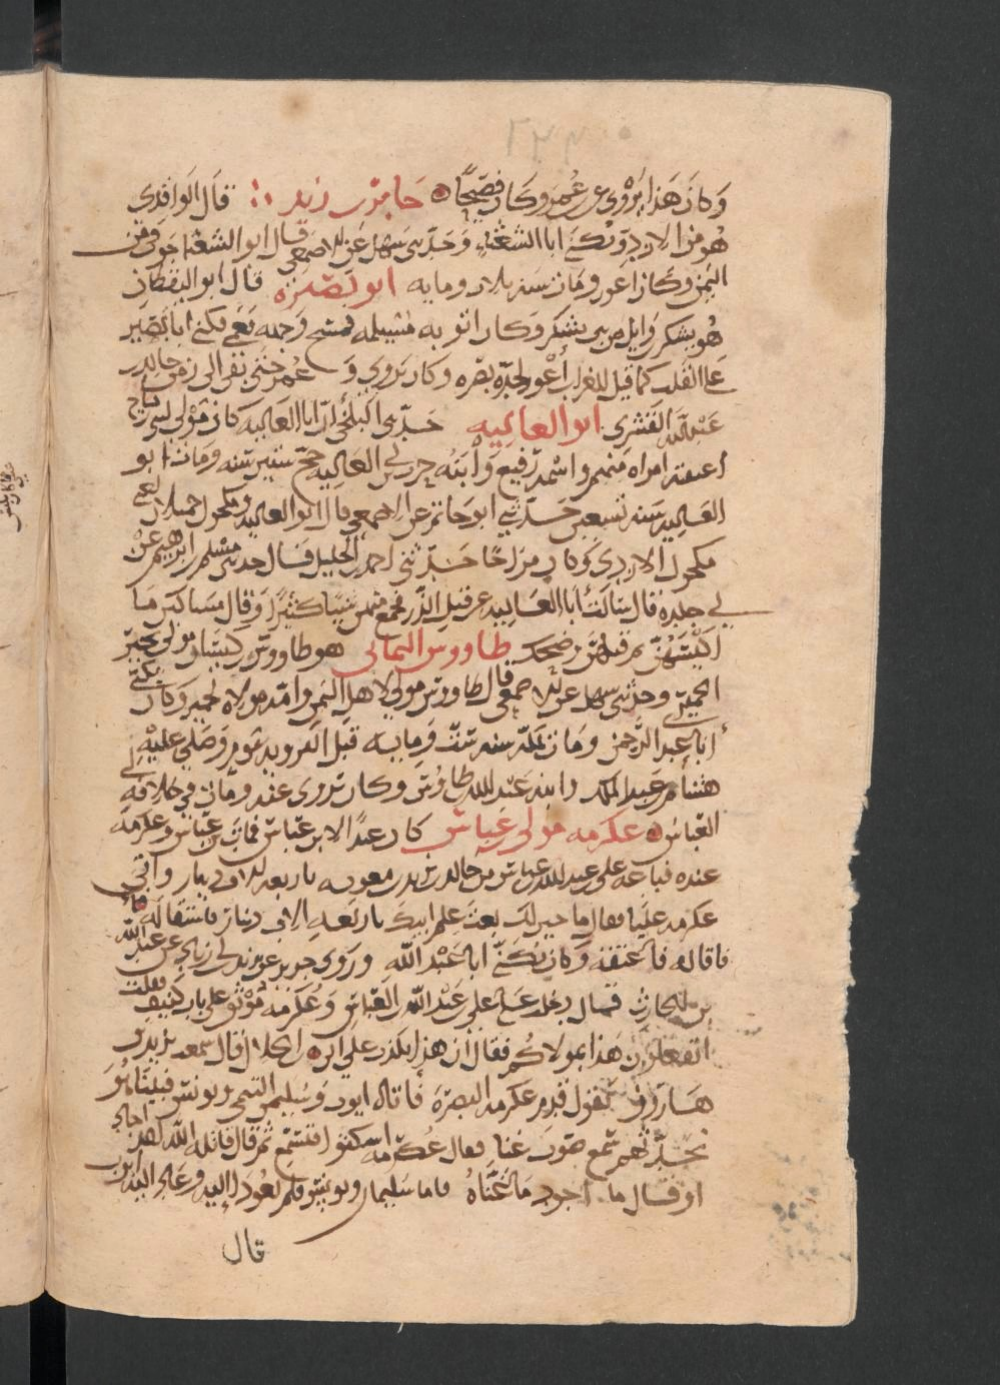 وكان هذا يروي عن عمر وكان فصيحًا جابر بن زيد قال الواقدي
هو من الازد ويكنى ابا الشعثاء وحدثني سهل عن الاصمعي قال ابو الشعثا جوفي من
اليمن وكان اعور ومات سنة ثلاث ومايه ابو نضرة قال ابو اليقظان
هو يشكر وايل بن يشكر وكان ابو به وجهه نعم يكنى ابا بصير
على القلب كما قيل للغراب أعور لحدة بصره وكان يروي و عمر حتى نفر الى زمن خالد بن
عبد الله القسري ابو العاليه حدثني البلخي ان ابا العاليه كان مولى لبني رياح
اعتقته امراة منهم واسمه رفيع وابنه حرب بن ابي العاليه حج ستين سنه ومات ابو
العاليه سنه تسعين حدثني ابو حاتم عن الاصمعي قال ابو العاليه ومكحول جميلان يعني
مكحول الازدي وكان مزاحًا حدثني احمد بن الخليل قال حدثني مسلم بن ابرهيم عن
ابي خلده قال سالت ابا العاليه عن قتل الذر فجمع منهن شيا كثيرًا وقال مساكين ما
اكيسهن ثم قتلهن وضحك طاووس اليماني هو طاووس بن كيسان مولى بحير
الحميري وحدثني سهل عن الاصمعي قال طاووس مولى لاهل اليمن وامه مولاة لحمير وكان يكنى
أبا عبد الرحمن ومات بمكه سنه ست ومايه قبل الترويه بيوم وصلى عليه
هشام بن عبد الملك وابنه عبد الله بن طاوس وكان يروى عنه ومات في خلافه ابي
العباس عكرمه مولى عباس كان عبدًا لابن عباس فمات بن عباس وعكرمه
عنده فباعه علي بن عبد الله بن عباس من خالد بن يزيد بن معويه باربعه الاف دينار واتى
عكرمه عليا فقال ما خير لك بعت علم ابيك باربعه الاف دينار فاستقاله
فاقاله فاعتقه وكان يكنى ابا عبد الله وروى جرير عن يزيد بن ابي زياد عن عبد الله
بن الحارث قال دخلت على علي بن عبد الله بن العباس وعكرمه موثق على باب كنيف فقلت
اتفعلون هذا بمولاكم فقال ان هذا يكذب على ابي ابن الخلال قال سمعت يزيد بن
هارون يقول قدم عكرمه البصرة فاتاه ايوب وسليمن التيمي ويونس فبينا هو
يحدثهم سمع صوت غنا فقال عكرمه اسكتوا فنسمع ثم قال قاتله الله لقد اجاد
او قال ما اجود ما غناه فاما سليمان ويونس فلم يعودا اليه وعاد اليه ايوب
قال